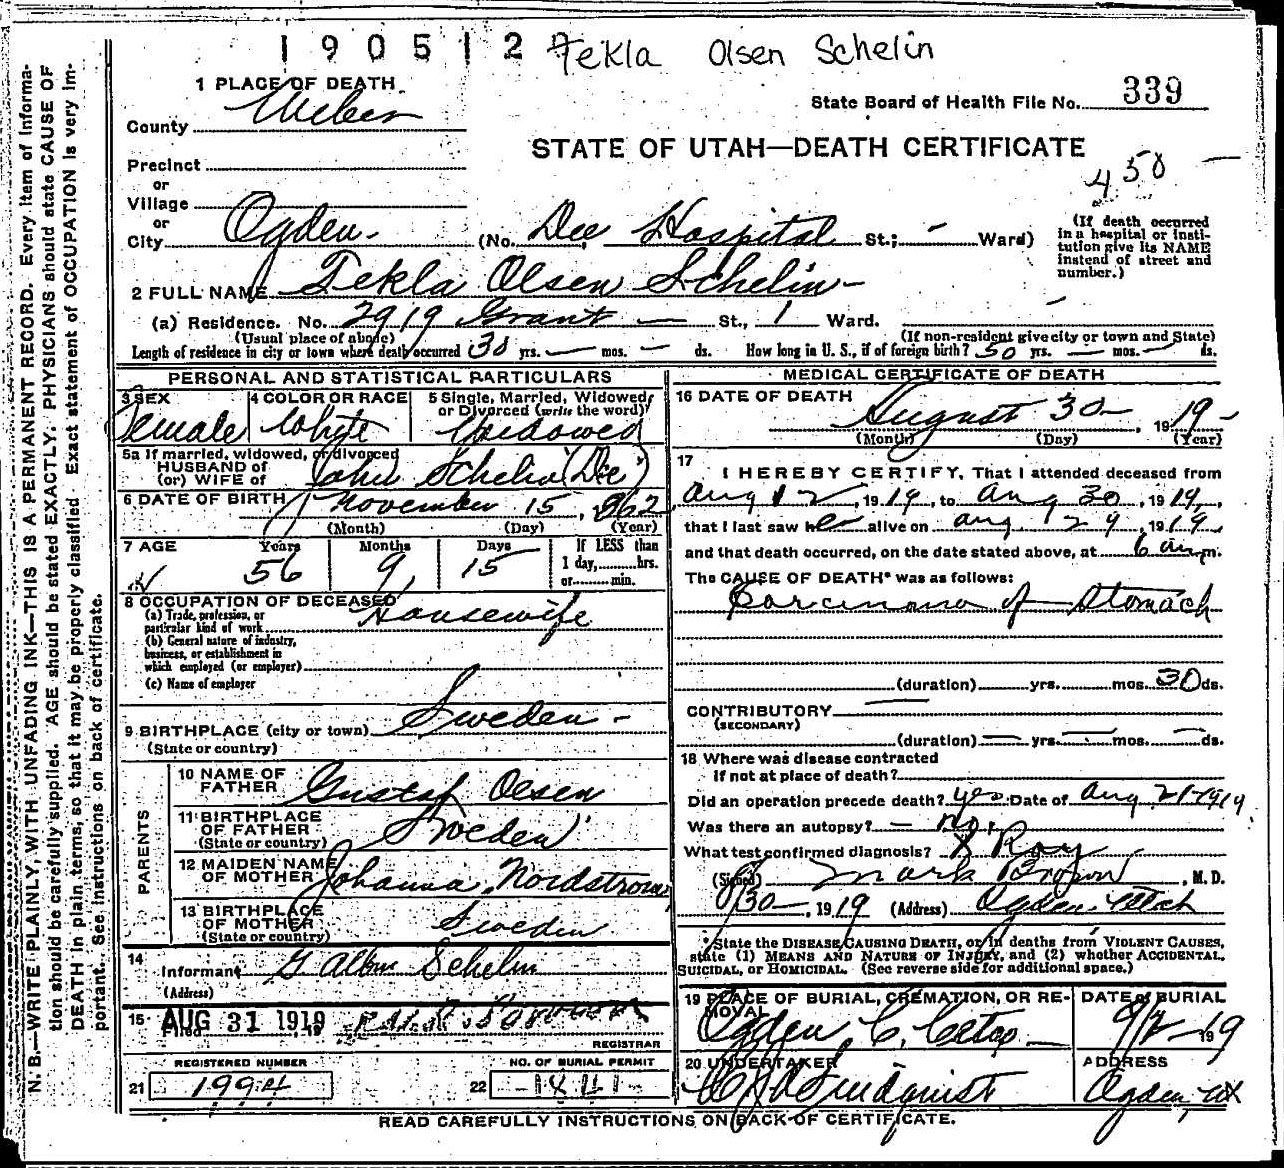 1 9 0 5 1 2 Tekla Olsen Schelin
1 PLACE OF DEATH.
State Board of Health File No. 339
County Weber
STATE OF UTAH—DEATH CERTIFICATE
Precinct
450 —
or
Village
or
City Ogden. (No. Dee Hospital St.; - Ward)
(If death occurred in a hospital or institution give its NAME instead of street and number.)
2 FULL NAME Tekla Olsen Schelin-
(a) Residence. No. 2919 Grant — St., 1 Ward.
(Usual place of abode) (If non-resident give city or town and State)
Length of residence in city or town where death occurred 30 yrs. — mos. — ds. How long in U. S., if of foreign birth? 50 yrs. — mos. — ds.
PERSONAL AND STATISTICAL PARTICULARS
3 SEX Female
4 COLOR OR RACE White
5 Single, Married, Widowed, or Divorced (write the word) Widowed
5a If married, widowed, or divorced
HUSBAND of
(or) WIFE of John Schelin (Dec)
6 DATE OF BIRTH November 15, 1862
(Month) (Day) (Year)
7 AGE Years Months Days If LESS than
56 9 15 1 day,......hrs.
or......min.
8 OCCUPATION OF DECEASED
(a) Trade, profession, or
particular kind of work Housewife
(b) General nature of industry,
business, or establishment in
which employed (or employer)
(c) Name of employer
9 BIRTHPLACE (city or town) Sweden -
(State or country)
PARENTS
10 NAME OF FATHER Gustaf Olsen
11 BIRTHPLACE OF FATHER Sweden
(State or country)
12 MAIDEN NAME OF MOTHER Johanna Nordstrom
13 BIRTHPLACE OF MOTHER Sweden
(State or country)
14
Informant G Schelin
(Address)
15 AUG 31 1919
Filed 19
REGISTRAR
REGISTERED NUMBER NO. OF BURIAL PERMIT
21 1994 22 1841
MEDICAL CERTIFICATE OF DEATH
16 DATE OF DEATH August 30 — , 1919-
(Month) (Day) (Year)
17
I HEREBY CERTIFY, That I attended deceased from
Aug 12, 1919, to Aug 30, 1919,
that I last saw her alive on Aug 29, 1919,
and that death occurred, on the date stated above, at 6 am m.
The CAUSE OF DEATH* was as follows:
Carcinoma of Stomach
(duration) yrs. mos. 30 ds.
CONTRIBUTORY —
(SECONDARY)
(duration) — yrs. — mos. — ds.
18 Where was disease contracted
if not at place of death?
Did an operation precede death? yes Date of Aug 21-1919
Was there an autopsy? — no.
What test confirmed diagnosis? X Ray
(Signed) Mark Brown, M. D.
8/30, 1919 (Address) Ogden Utah
*State the DISEASE CAUSING DEATH, or in deaths from VIOLENT CAUSES,
state (1) MEANS AND NATURE OF INJURY, and (2) whether ACCIDENTAL,
SUICIDAL, or HOMICIDAL. (See reverse side for additional space.)
19 PLACE OF BURIAL, CREMATION, OR REMOVAL DATE of BURIAL
Ogden C. 9/2 — 1919
20 UNDERTAKER ADDRESS
Lindquist Ogden, Ut
READ CAREFULLY INSTRUCTIONS ON BACK OF CERTIFICATE.
N. B.—WRITE PLAINLY, WITH UNFADING INK—THIS IS A PERMANENT RECORD. Every item of informa-
tion should be carefully supplied. AGE should be stated EXACTLY. PHYSICIANS should state CAUSE OF
DEATH in plain terms, so that it may be properly classified. Exact statement of OCCUPATION is very im-
portant. See instructions on back of certificate.